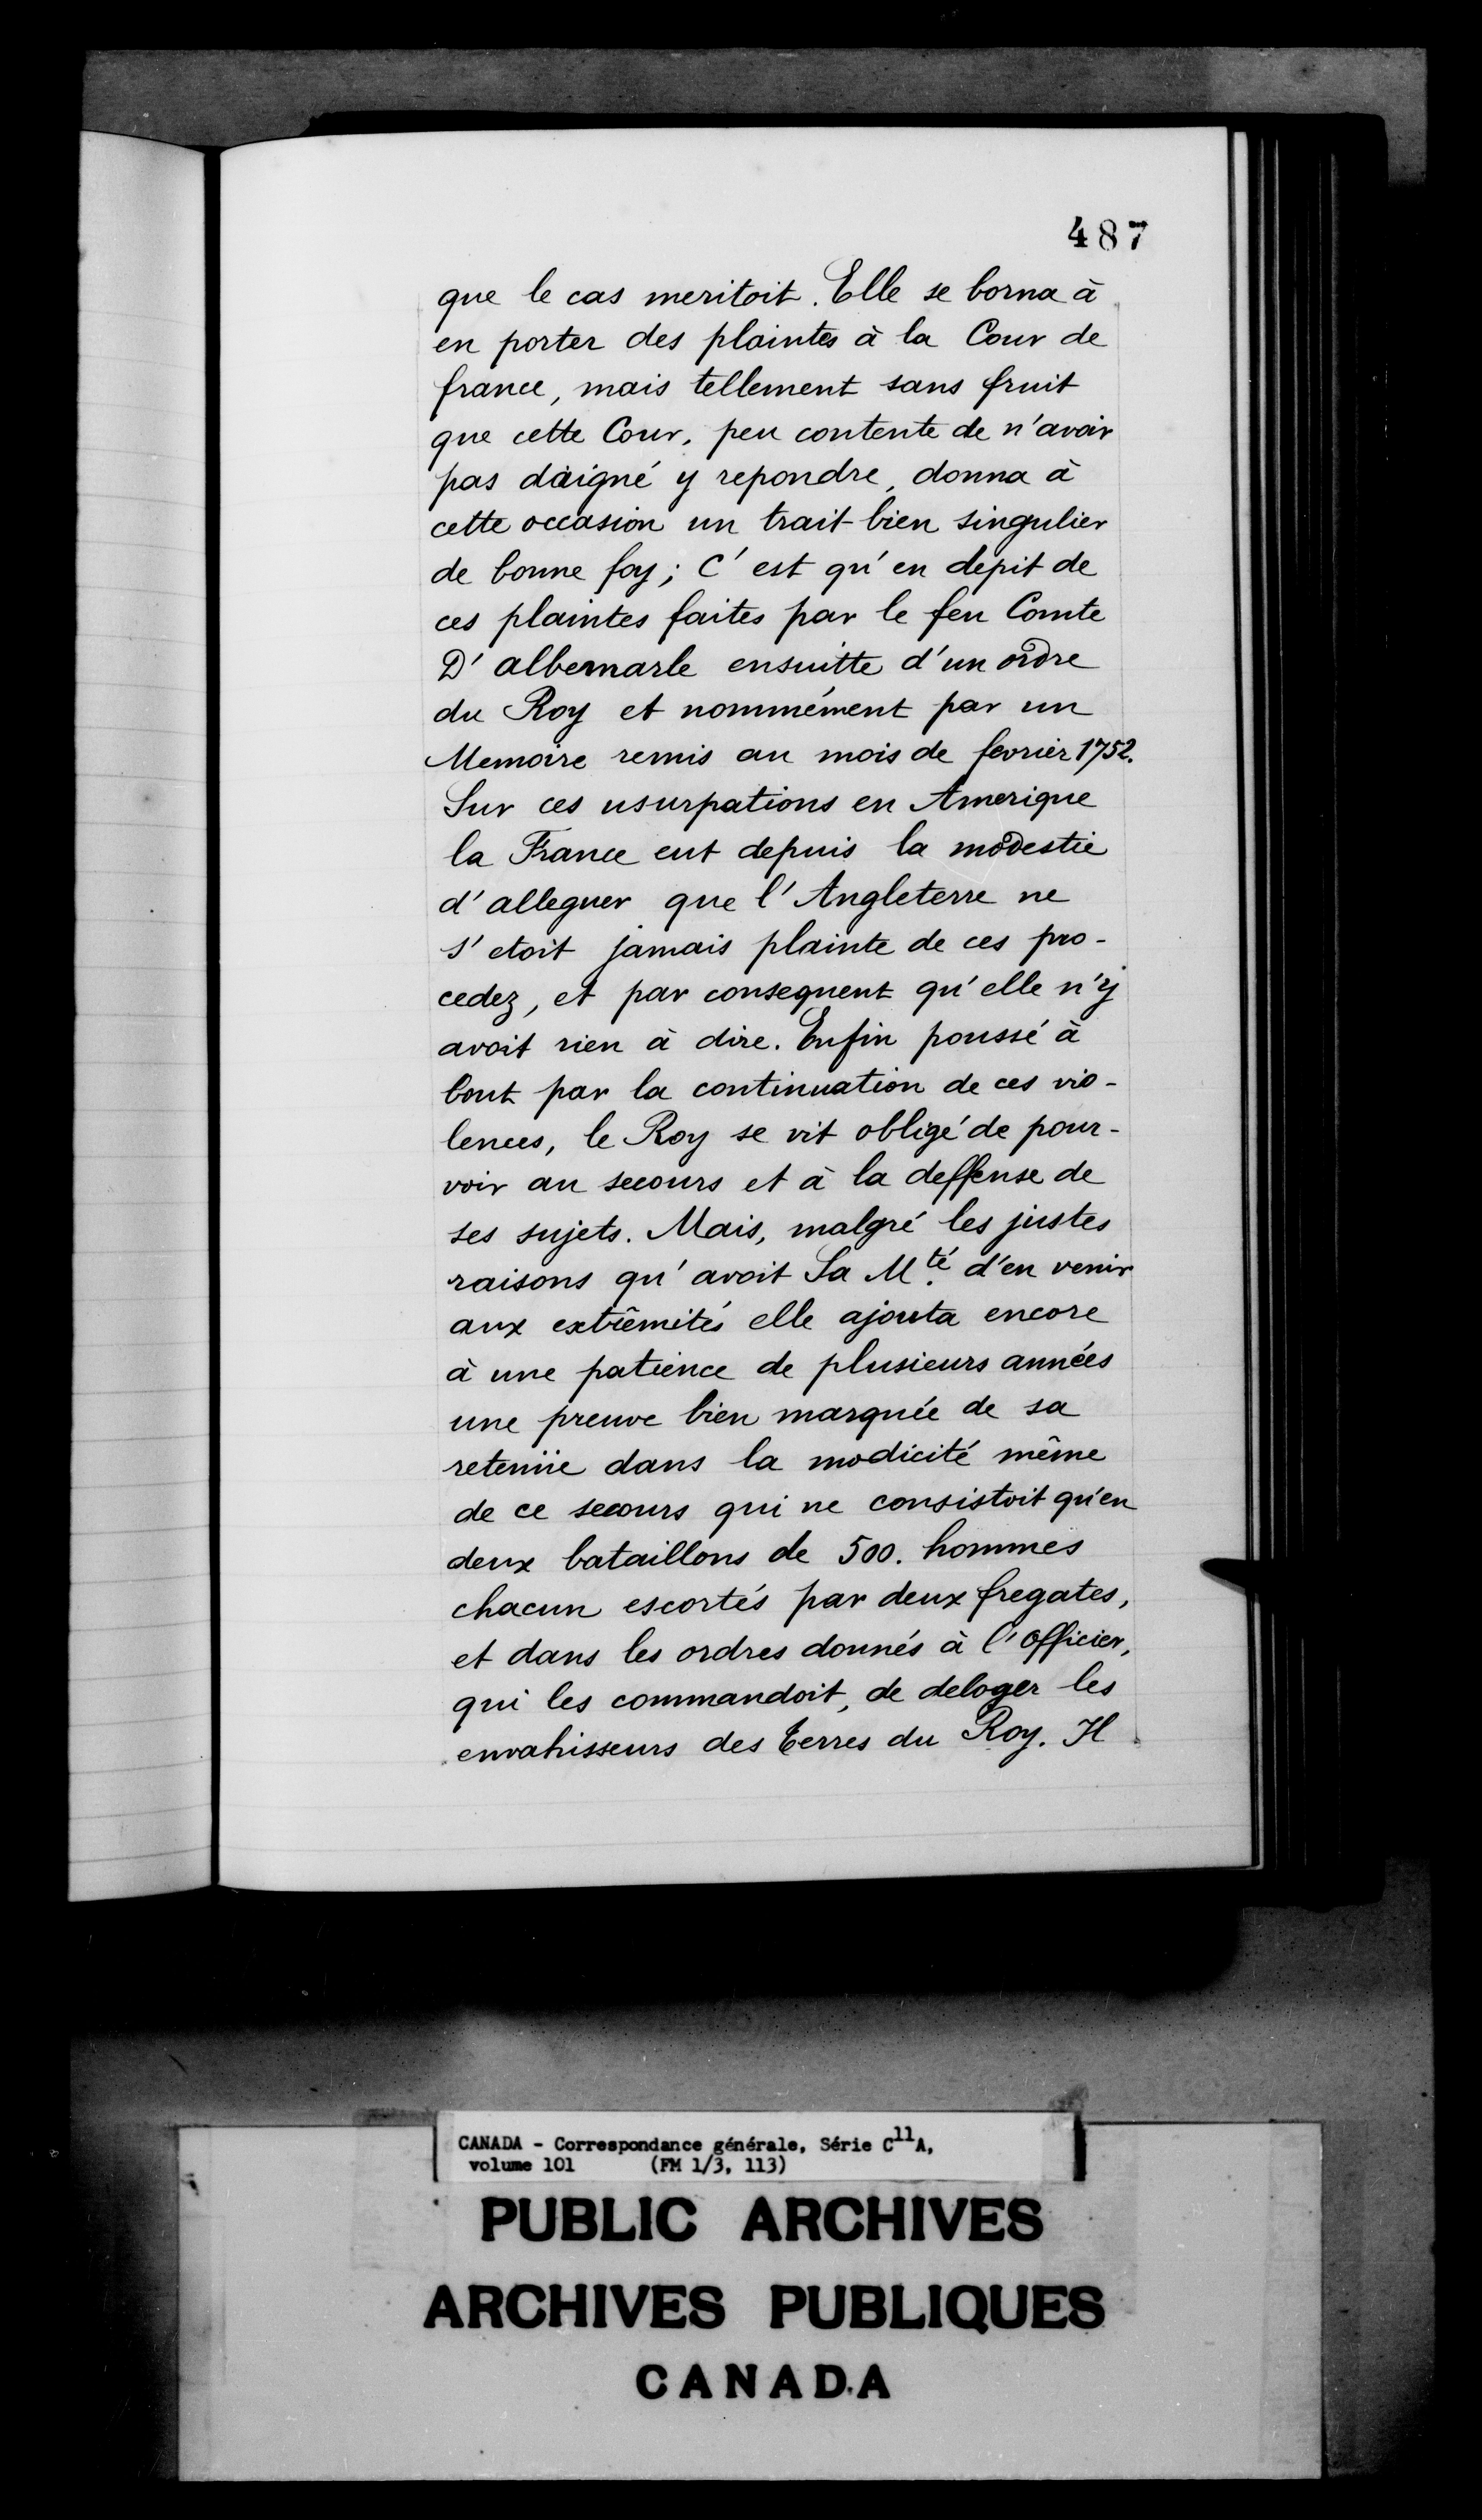 487
que le cas meritoit. Elle se borna à
en porter des plaintes à la Cour de
france, mais tellement sans fruit
que cette Cour, peu contente de n'avoir
pas daigné y repondre, donna à
cette occasion un trait bien singulier
de bonne foy; C'est qu'en depit de
ces plaintes faites par le feu Comte
D'albemarle ensuitte d'un ordre
du Roy et nommément par un
Memoire remis au mois de fevrier 1752.
Sur ces usurpations en Amerique
la France eut depuis la modestie
d'alleguer que l'Angleterre ne
s'etoit jamais plainte de ces pro-
cedez, et par consequent qu'elle n'y
avoit rien à dire. Enfin poussé à
bout par la continuation de ces vio-
lences, le Roy se vit obligé de pour-
voir au secours et à la deffense de
ses sujets. Mais, malgré les justes
raisons qu'avoit Sa M.té d'en venir
aux extrêmités elle ajouta encore
à une patience de plusieurs années
une preuve bien marquée de sa
retenüe dans la modicité même
de ce secours qui ne consistoit qu'en
deux bataillons de 500. hommes
chacun escortés par deux fregates,
et dans les ordres donnés à l'officier,
qui les commandoit, de deloger les
envahisseurs des terres du Roy. Il
CANADA - Correspondance générale, Série C11A,
volume 101 (FM 1/3, 113)
PUBLIC ARCHIVES
ARCHIVES PUBLIQUES
CANADA